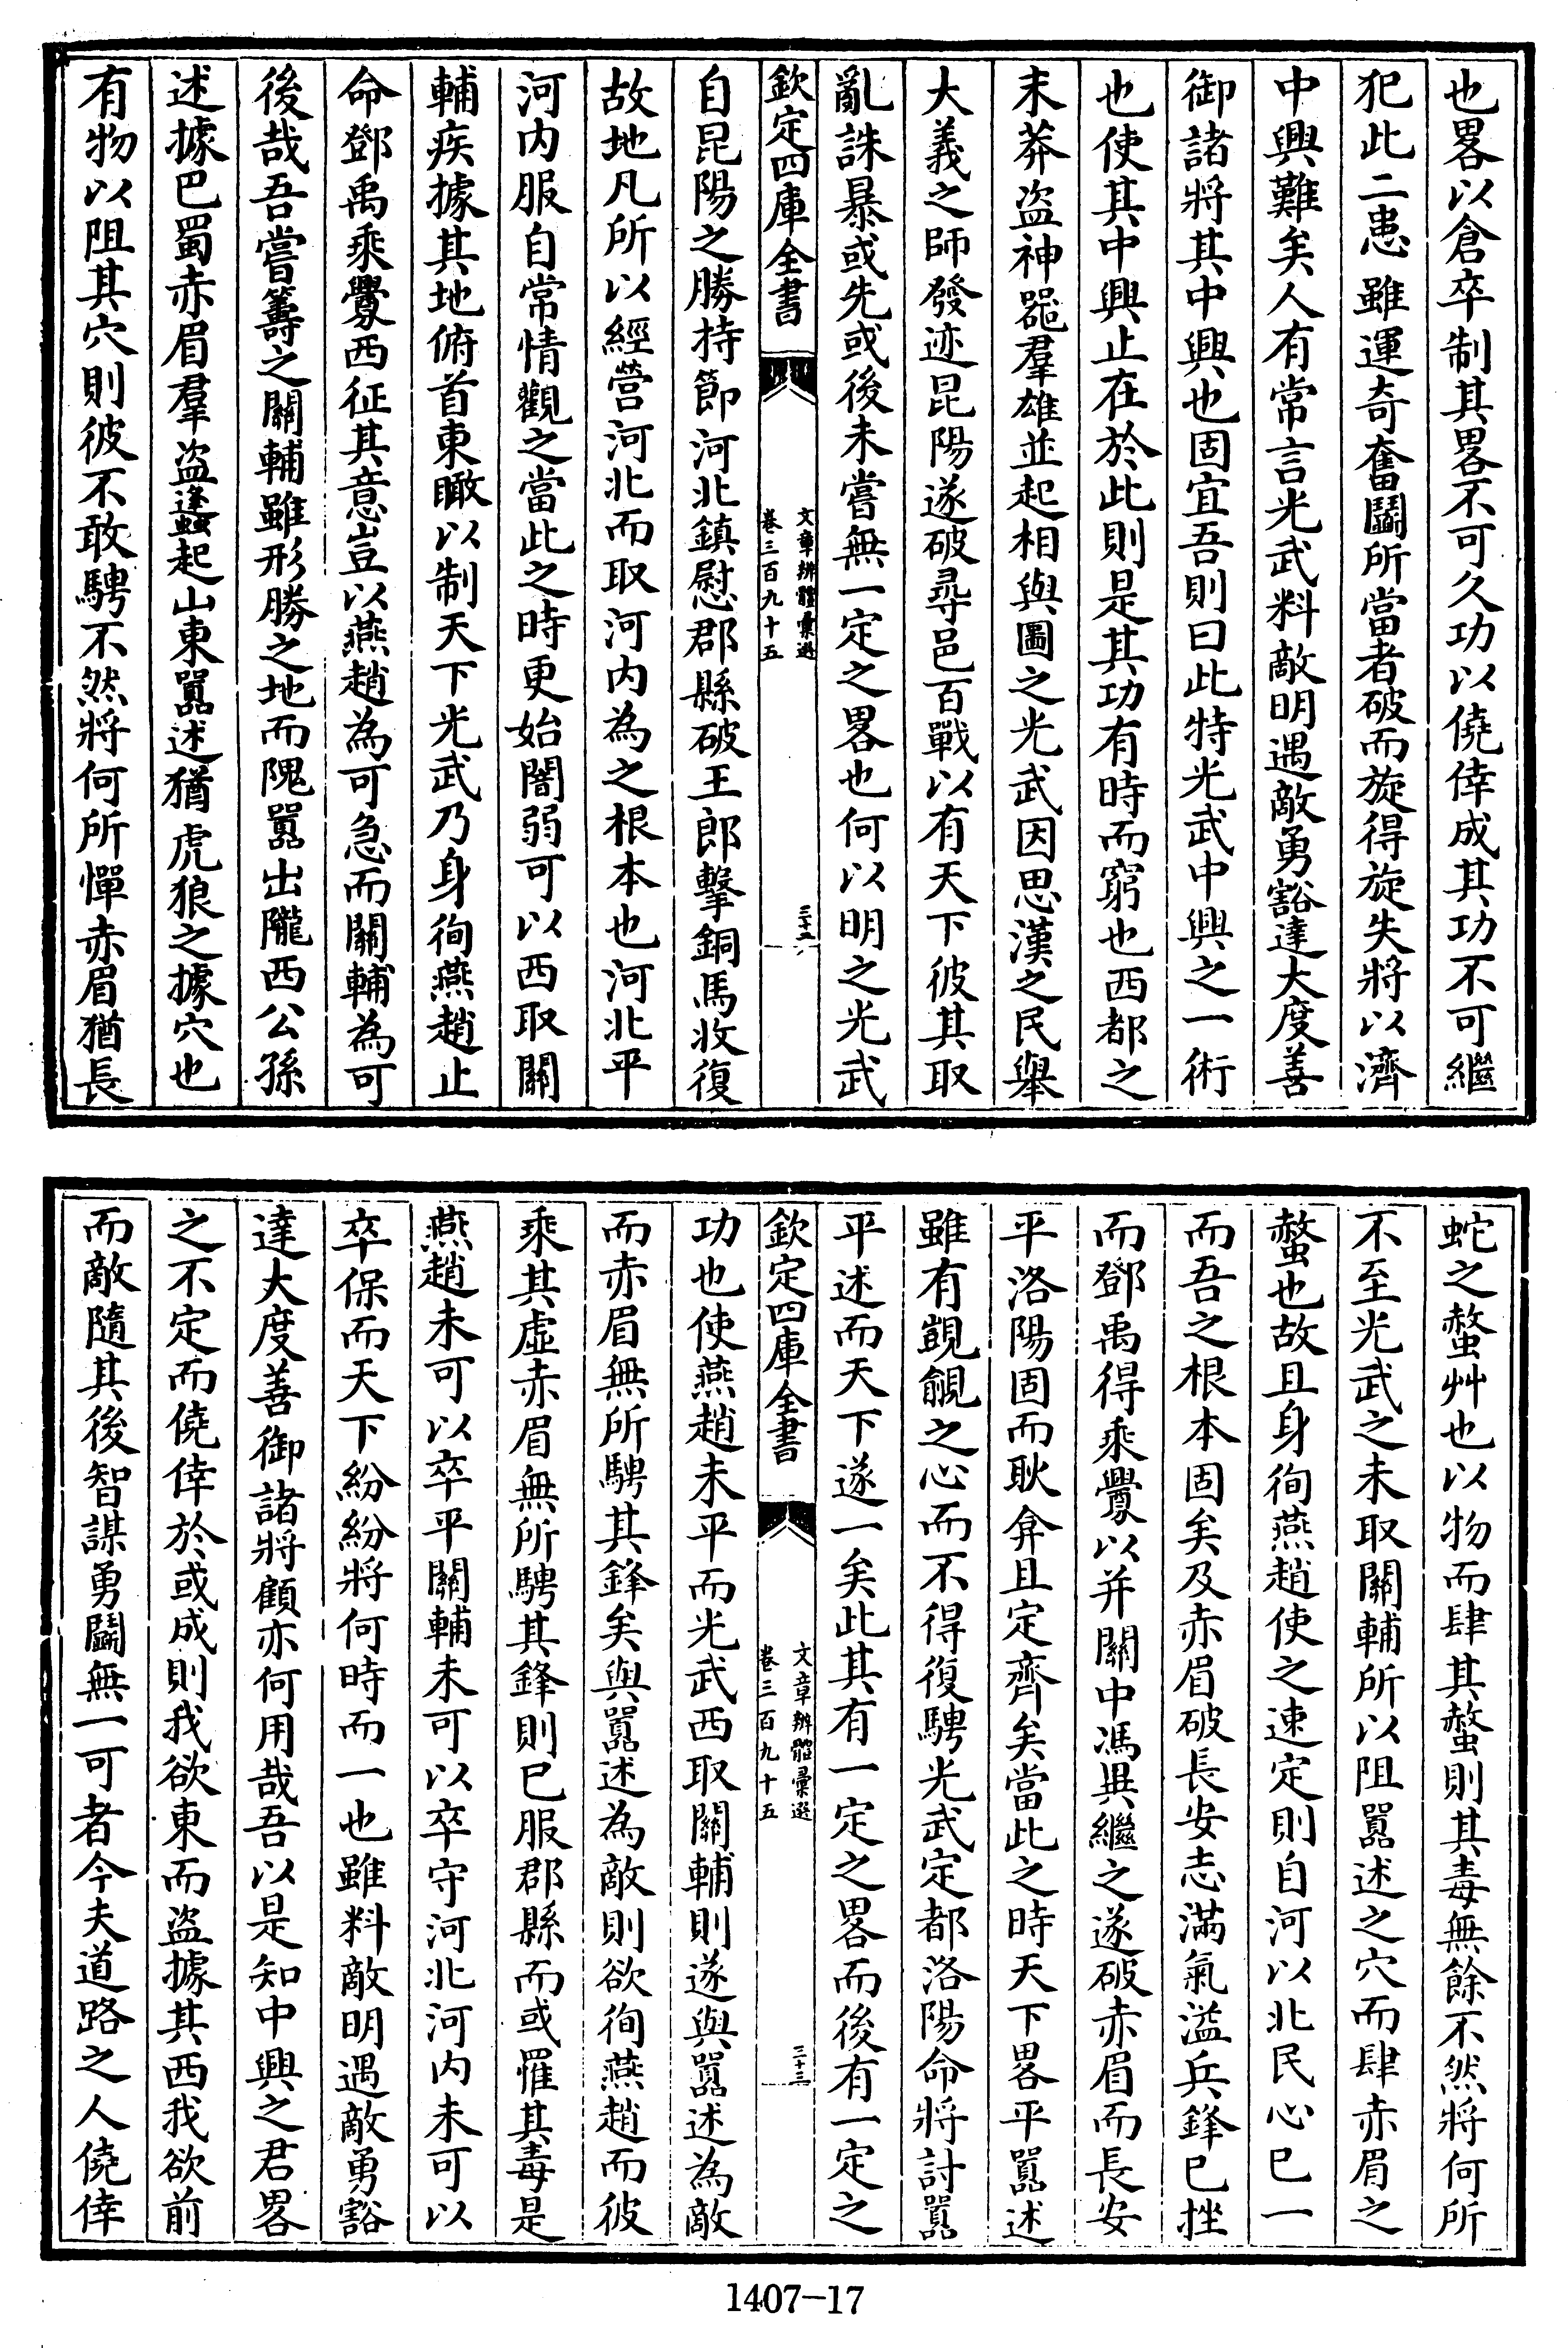 也畧以倉卒制其畧不可久功以僥倖成其功不可繼
犯此二患雖運奇奮鬬所當者破而旋得旋失將以濟
中興難矣人有常言光武料敵明遇敵勇豁達大度善
御諸將其中興也固宜吾則曰此特光武中興之一術
也使其中興止在於此則是其功有時而窮也西都之
末莽盜神器羣雄並起相與圖之光武因思漢之民舉
大義之師發迹昆陽遂破尋邑百戰以有天下彼其取
亂誅暴或先或後未嘗無一定之畧也何以明之光武
欽定四庫全書
文章辨體彙選
卷三百九十五
三十二
自昆陽之勝持節河北鎮慰郡縣破王郎擊銅馬收復
故地凡所以經營河北而取河内為之根本也河北平
河内服自常情觀之當此之時更始闇弱可以西取關
輔疾據其地俯首東瞰以制天下光武乃身徇燕趙止
命鄧禹乘釁西征其意豈以燕趙為可急而關輔為可
後哉吾嘗籌之關輔雖形勝之地而隗囂出隴西公孫
述據巴蜀赤眉羣盜蠭起山東囂述猶虎狼之據穴也
有物以阻其穴則彼不敢騁不然將何所憚赤眉猶長
蛇之螫艸也以物而肆其螫則其毒無餘不然將何所
不至光武之未取關輔所以阻囂述之穴而肆赤眉之
螫也故且身徇燕趙使之速定則自河以北民心已一
而吾之根本固矣及赤眉破長安志滿氣溢兵鋒已挫
而鄧禹得乘釁以并關中馮異繼之遂破赤眉而長安
平洛陽固而耿弇且定齊矣當此之時天下畧平囂述
雖有覬覦之心而不得復騁光武定都洛陽命將討囂
平述而天下遂一矣此其有一定之畧而後有一定之
欽定四庫全書
文章辨體彙選
卷三百九十五
三十三
功也使燕趙未平而光武西取關輔則遂與囂述為敵
而赤眉無所騁其鋒矣與囂述為敵則欲徇燕趙而彼
乘其虛赤眉無所騁其鋒則已服郡縣而或罹其毒是
燕趙未可以卒平關輔未可以卒守河北河内未可以
卒保而天下紛紛將何時而一也雖料敵明遇敵勇豁
達大度善御諸將顧亦何用哉吾以是知中興之君畧
之不定而僥倖於或成則我欲東而盜據其西我欲前
而敵隨其後智謀勇鬬無一可者今夫道路之人僥倖
1407-17